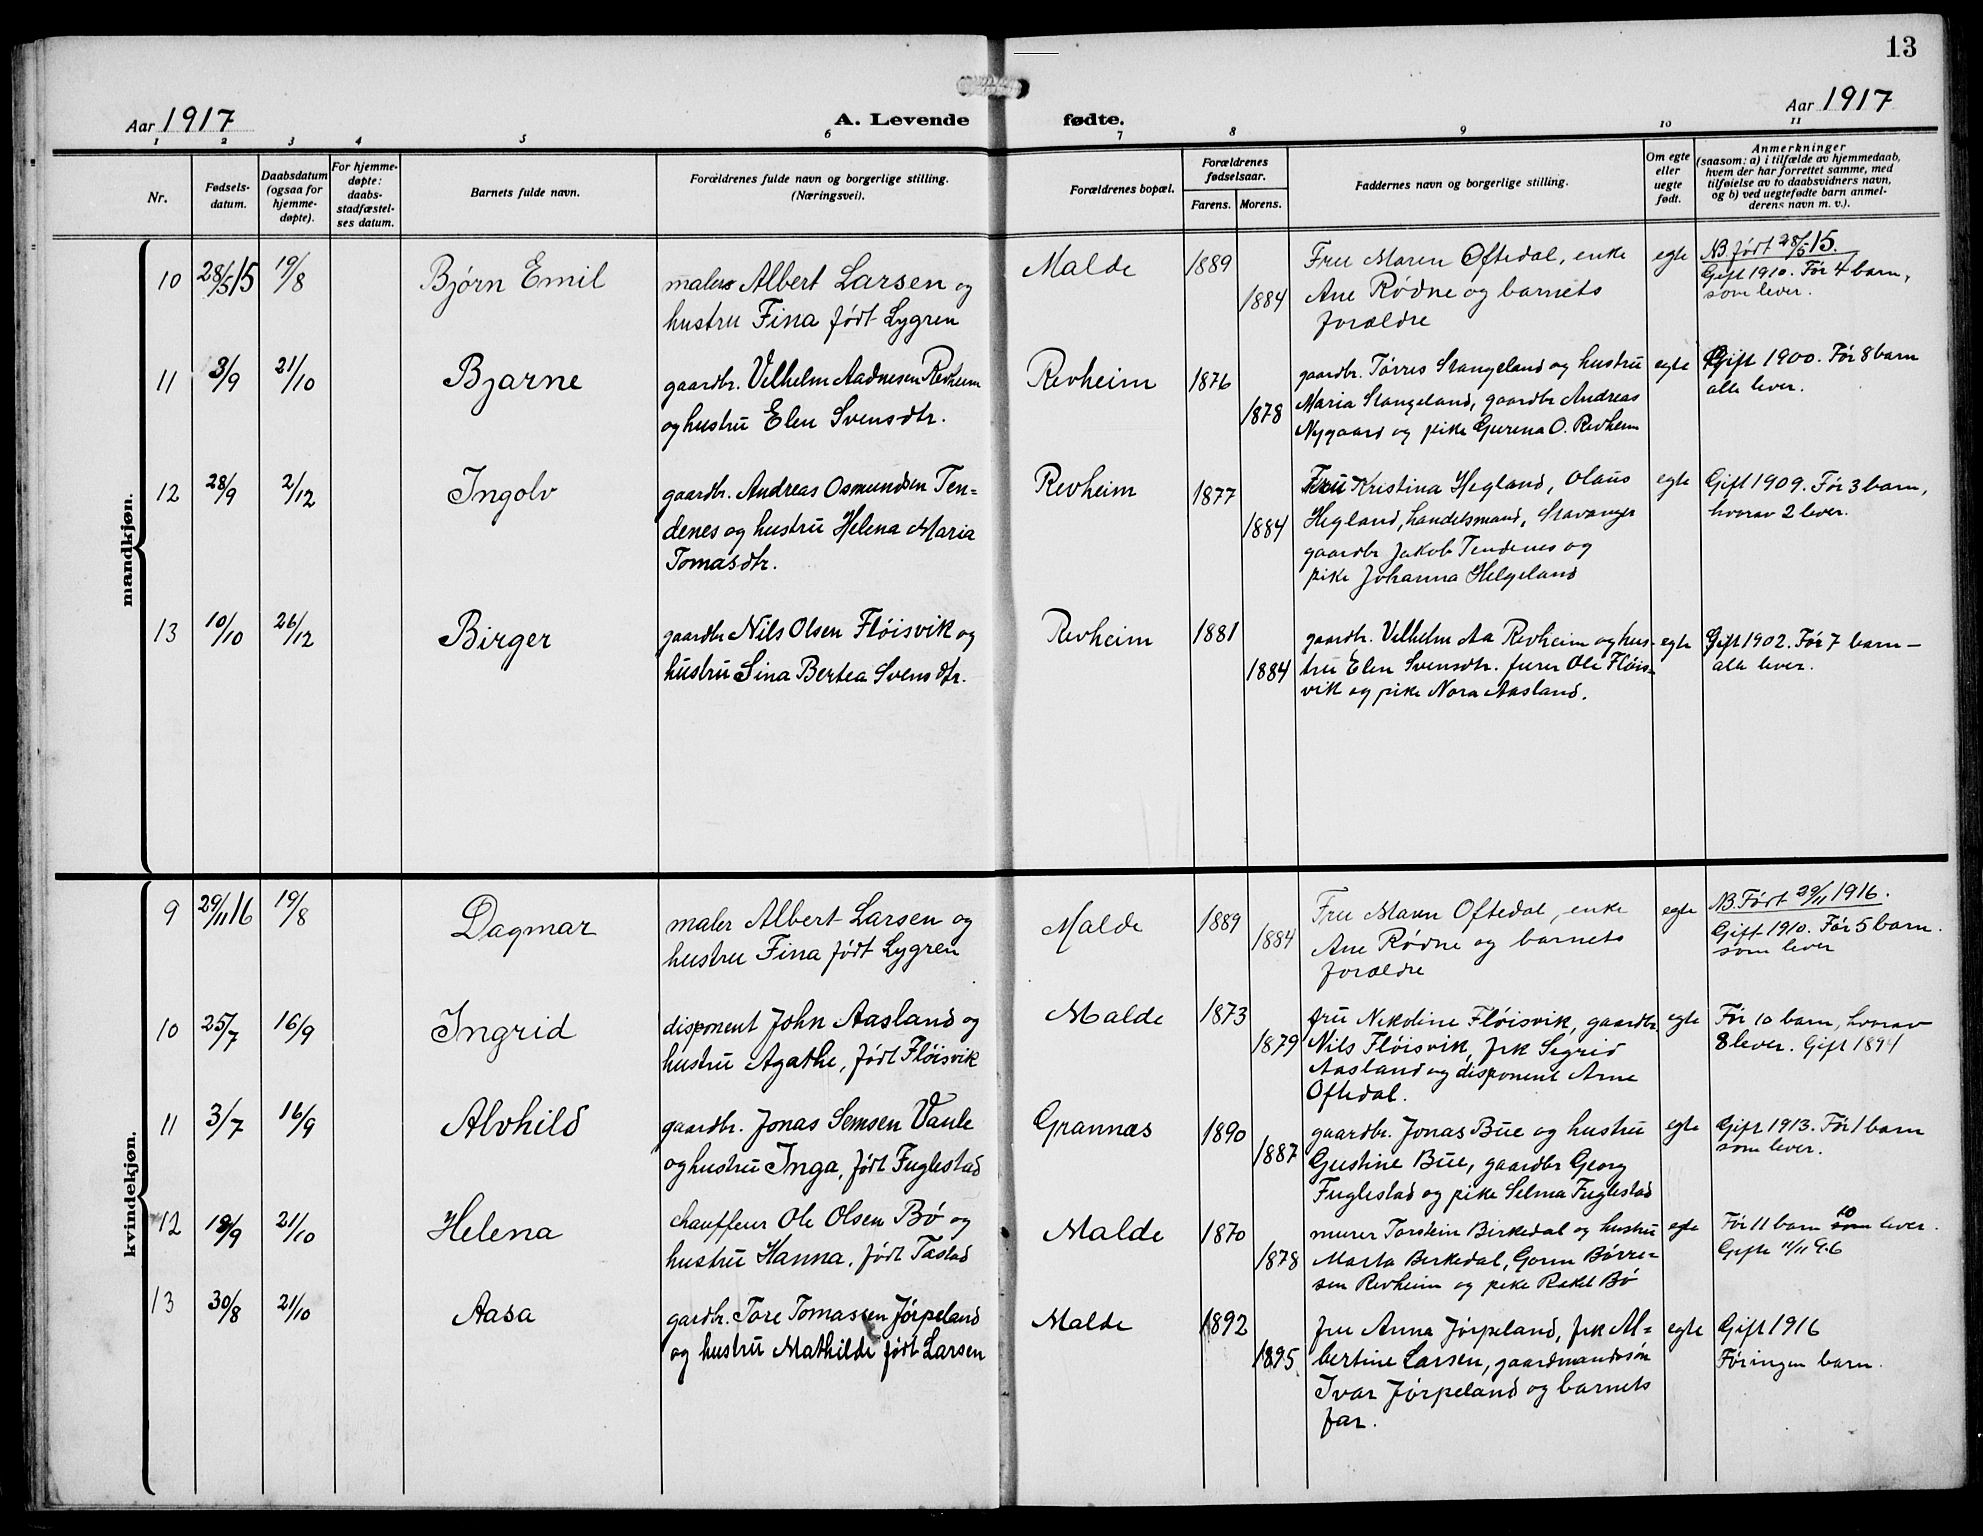 13
Aar 1917
A. Levende fødte.
Aar 1917
1 2 3 4 5 6 7 8 9 10 11
Nr.
Fødsels-
datum.
Daabsdatum
(ogsaa for
hjemme-
døpte).
For hjemme-
døpte:
daabs-
stadfæstel-
ses datum.
Barnets fulde navn.
Forældrenes fulde navn og borgerlige stilling.
(Næringsvei).
Forældrenes bopæl.
Forældrenes
fødselsaar.
Farens. Morens.
Faddernes navn og borgerlige stilling.
Om egte
eller
uegte
født.
Anmerkninger
(saasom: a) i tilfælde av hjemmedaab,
hvem der har forrettet samme, med
tilføielse av to daabsvidners navn,
og b) ved uegtefødte barn anmel-
derens navn m. v.).
mandkjøn.
10 28/5 15 19/8 Bjørn Emil
maler Albert Larsen og
hustru Fina født Lygren
Malde 1889
1884
Fru Maren Oftedal, enke
Ane Rødne og barnets
forældre
egte
NB født 28/5-15.
Gift 1910. Før 4 barn,
som lever.
11 3/9 21/10 Bjarne
gaardbr. Vilhelm Aadnesen Revheim
og hustru Elen Svensdtr.
Revheim 1876
1878
gaardbr. Tørres Stangeland og hustru
Maria Stangeland, gaardbr Andreas
Nygaard og pike Gurena O. Revheim
egte
Gift 1900. Før 8 barn
alle lever.
12 28/9 2/12 Ingolv
gaardbr. Andreas Osmundsen Ten=
denes og hustru Helena Maria
Tomasdtr.
Revheim 1877
1884
Fru Kristina Hegland, Olaus
Hegland, handelsmand, Stavanger
gaardbr Jakob Tendenes og
pike Johanna Helgeland
egte
Gift 1909. Før 3 barn,
hvorav 2 lever.
13 10/10 26/12 Birger
gaardbr Nils Olsen Fløisvik og
hustru Sina Bertea Svensdtr.
Revheim 1881
1884
gaardbr. Vilhelm Aa Revheim og hus-
tru Elen Svensdtr. furer Ole Fløis-
vik og pike Nora Aasland.
egte
Gift 1902. Før 7 barn –
alle lever.
kvindekjøn.
9 29/11 16 19/8 Dagmar
maler Albert Larsen og
hustru Fina født Lygren
Malde 1889
1884
Fru Maren Oftedal, enke
Ane Rødne og barnets
forældre
egte
NB. Født 29/11 1916.
Gift 1910. Før 5 barn.
som lever
10 25/7 16/9 Ingrid
disponent John Aasland og
hustru Agathe, født Fløisvik
Malde 1873
1879
fru Nikoline Fløisvik, gaardbr
Nils Fløisvik, frk Sigrid
Aasland og disponent Arne
Oftedal.
egte
Før 10 barn, hvorav
8 lever. Gift 1894
11 3/7 16/9 Alvhild
gaardbr. Jonas Semsen Vaule
og hustru Inga, født Fuglestad
Grannæs 1890
1887
gaardbr. Jonas Bue og hustru
Gustine Bue, gaardbr Georg
Fuglestad og pike Selma Fuglestad
egte
Gift 1913. Før 1 barn
som lever.
12 18/9 21/10 Helena
chauffeur Ole Olsen Bø og
hustru Hanna, født Tastad
Malde 1870
1878
murer Torstein Birkedal og hustru
Marta Birkedal, Gorm Børre=
sen Revheim og pike Rakel Bø
egte
Før 11 barn 10 som lever.
Gifte 11/11 96
13 30/8 21/10 Aasa
gardbr. Tore Tomassen Jørpeland
og hustru Mathilde født Larsen
Malde 1892
1895
fru Anna Jørpeland, frk Al=
bertine Larsen, gaardmandssøn
Ivar Jørpeland og barnets
far.
egte
Gift 1916
Før ingen barn.